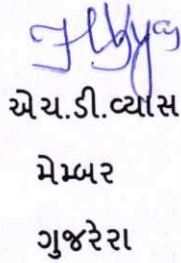 એચ.ડી.વ્યાસ
મેમ્બર
ગુજરેરા